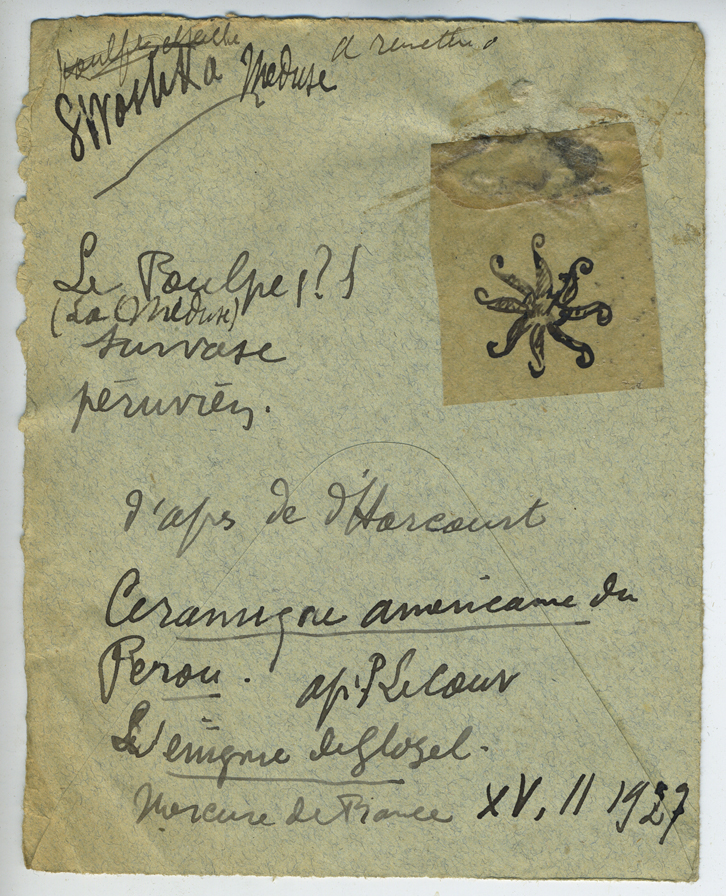 poulpe
a remettre
Swastika Meduse
Le Poulpe (?)
(La Meduse)
sur vase
péruvien.
d'aps de d'Harcourt
Ceramique americaine du
Perou. ap. P Lecour
L'enigme de Glozel.
Mercure de France XV, II 1927